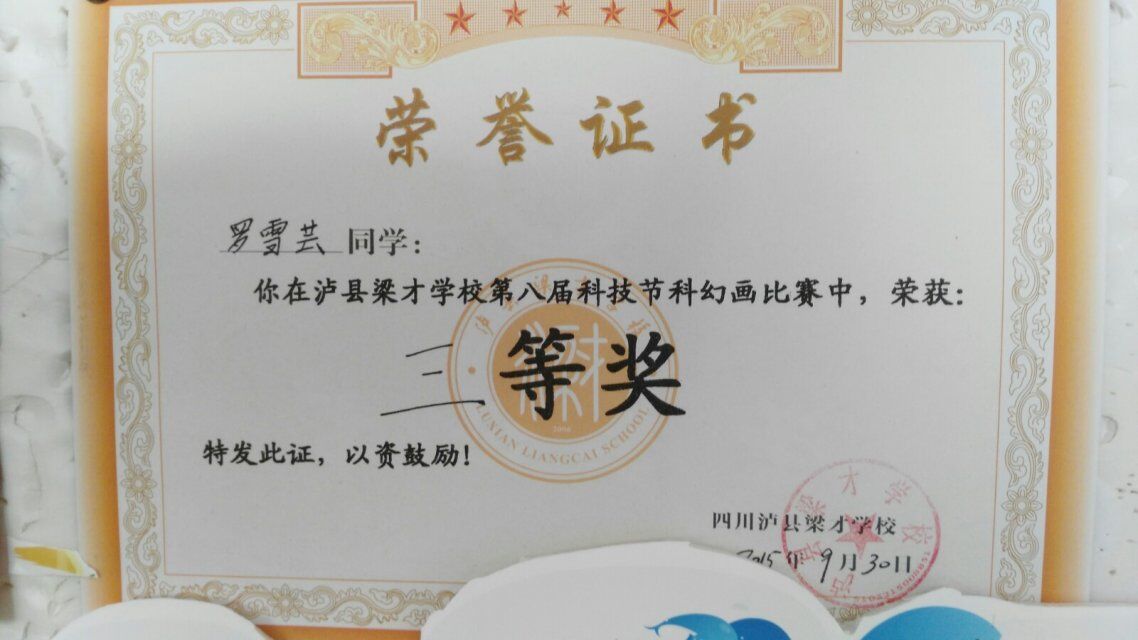 荣誉证书
罗雪芸 同学：
你在泸县梁才学校第八届科技节科幻画比赛中，荣获：
三等奖
LUXIAN LIANGCAI SCHOOL
特发此证，以资鼓励！
四川泸县梁才学校
2015年9月30日